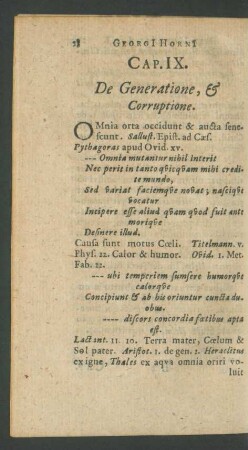 28 GEORGI HORNI
CAP. IX.
De Generatione, &
Corruptione.
OMnia orta occidunt & aucta sene-
scunt. Sallust. Epist. ad Cæs.
Pythagoras apud Ovid. xv.
--- Omnia mutantur nihil interit
Nec perit in tanto qvicqvam mihi credi-
te mundo,
Sed variat faciemqve novat; nasciqve
vocatur
Incipere esse aliud qvam qvod fuit ante
moriqve
Desinere illud.
Causa sunt motus Cœli. Titelmann. v.
Phys. 22. Calor & humor. Ovid. 1. Met.
Fab. 22.
--- ubi temperiem sumsere humorqve
calorqve
Concipiunt & ab his oriuntur cuncta du-
obus.
---- discors concordia fœtibus apta
est.
Lactant. 11. 10. Terra mater, Cœlum &
Sol pater. Aristot. 1. de gen. 2. Heraclitus
ex igne, Thales ex aqva omnia oriri vo-
luit